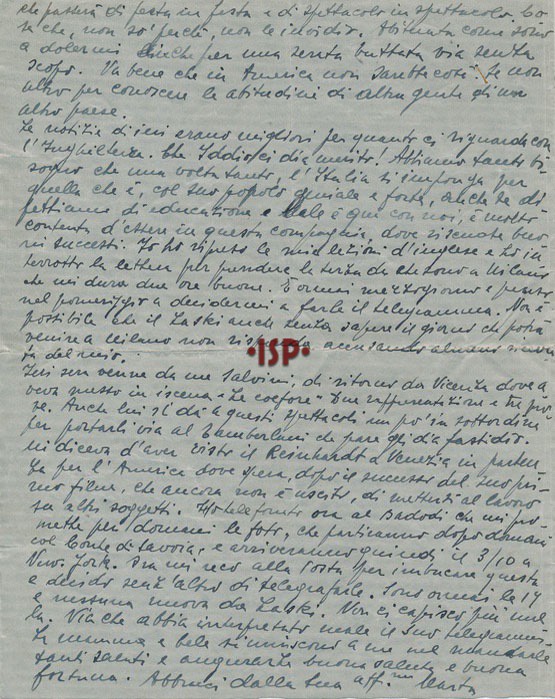 che passerà di festa in festa e di spettacolo in spettacolo. Co-
sa che, non so' perché, non le invidio. Abituata come sono
a dolermi anche per una serata buttata via senza
scopo. Va bene che in America non sarebbe così. Se non
altro per conoscere le abitudini di altra gente di un
altro paese.
Le notizie di ieri erano migliori per quanto ci riguarda con
l'Inghilterra. Che Iddio ci dia aiuto! Abbiamo tanto bi-
sogno che una volta tanto, l'Italia si imponga per
quello che è, col suo popolo geniale e forte, anche se di-
fettiamo di educazione e Bele è qui con noi, è molto
contenta d'essere in questa compagnia, dove riscuote buo-
ni successi. Io ho ripreso le mie lezioni d'inglese e ho in-
terrotto la lettera per prendere la terza da che sono a Milano
che mi dura due ore buone. È ormai mezzogiorno e penso
nel pomeriggio a decidermi a farle il telegramma. Non è
possibile che il Laski anche senza sapere il giorno che potrà
venire a Milano non risponda accusando almeno ricevu-
ta del mio.
•ISP•
Ieri sera venne da me Salvini, di ritorno da Vicenza dove a-
veva messo in iscena "Le Coefore" Due rappresentazioni e tre pro-
ve. Anche lui s'è dà a questi spettacoli un po' in sottordine
per portarli via al Tamberlani che pare gli dia fastidio.
Mi diceva d'aver visto il Reinhardt a Venezia in parten-
za per l'America dove spera, dopo il successo del suo pri-
mo film, che ancora non è uscito, di mettersi al lavoro
su altri soggetti. Ho telefonato ora al Badodi che mi pro-
mette per domani le foto, che partiranno dopodomani
col Conte di Savoia, e arriveranno quindi il 3/10 a
New-York. Ora mi reco alla Posta per imbucare questa
e decido senz'altro di telegrafarle. Sono ormai le 14
e nessuna nuova da Laski. Non ci capisco più nul-
la. Via che abbia interpretato male il suo telegramma.
La mamma e Bele si uniscono a me nel mandarle
tanti saluti e augurarle buona salute e buona
fortuna. Abbracci dalla sua aff.ma Marta